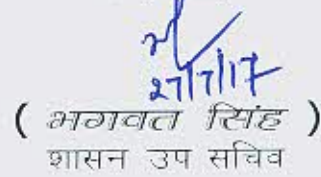 27/7/17
( भगवत सिंह )
शासन उप सचिव